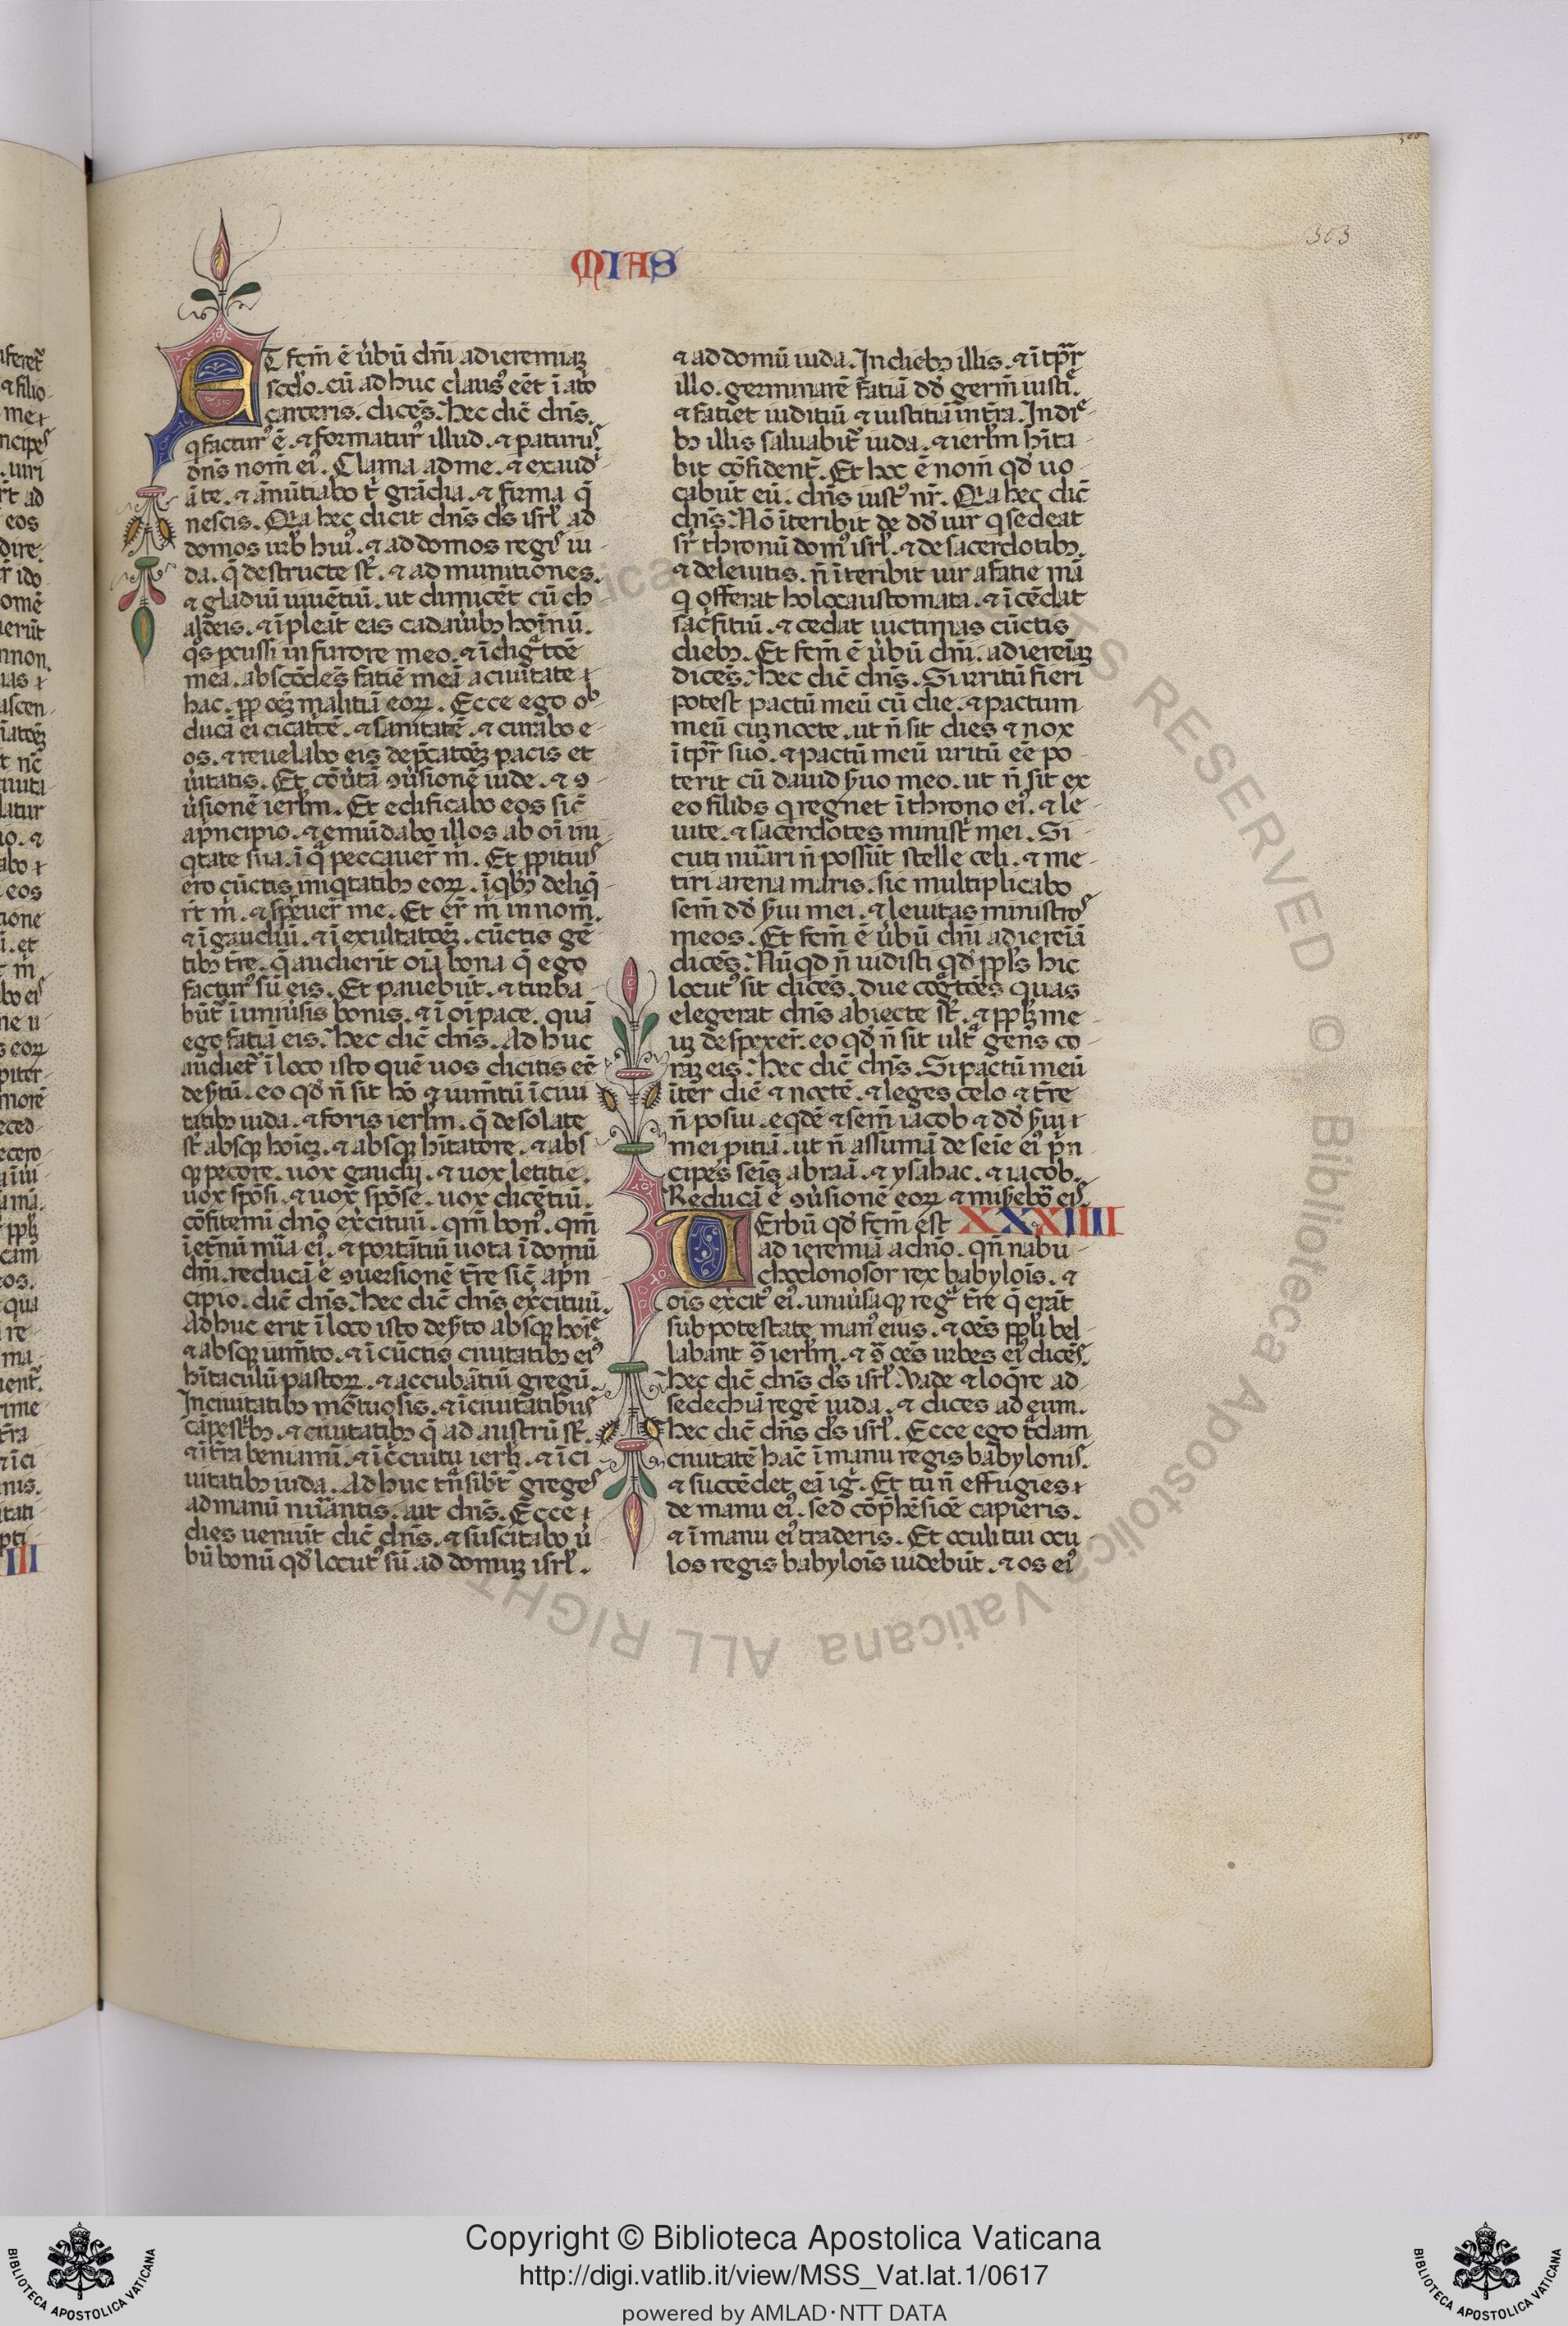 MIAS
ET fcm̄ ē ùbū dn̄i ad ieremiaꝫ
scdo. cū ad huc claus᾽ eēt ī at᾽o
carceris. dicēs. hec dic̄ dn̄s.
q̇ factur᾽ ē. ⁊ formatur᾽ illud. ⁊ paturus
dn̄s nom̄ ei᾽. Clama ad me. ⁊ exaud
ā te. ⁊ ān̄utiabo t̄ grādia. ⁊ firma q̄
nescis. Q᷈a hec dicit dn̄s ds̄ isrl̄ ad
domos urb᾽ hui᾽. ⁊ ad domos regis iu-
da. q̄ destructe st̄. ⁊ ad munitiones.
⁊ gladiū uiuētiū. ut dimicēt cū ch
aldeis. ⁊ īpleāt eis cadaùibꝫ hoīnū.
q᾽s ꝑcussi in furore meo. ⁊ īdig᷈tōē
mea. abscōdēs fatiē meā a ciuitate
hac. ꝓp oēꝫ malitiā eoꝝ. Ecce ego ob-
ducā ei cicat᷈cē. ⁊ sanitatē. ⁊ curabo e-
os. ⁊ reuelabo eis dep̄catōeꝫ pacis et
ùitatis. Et cōùtā ꝯùsionē iude. ⁊ ꝯ-
ùsionē ierlm̄. Et edificabo eos sic̄
a p̄ncipio. ⁊ emūdabo illos ab oī ini-
q̇tate sua. ī q᷈ peccauer̄ m᾽. Et ꝓpitius
ero cūctis iniq̇tatibꝫ eoꝝ. ī q᾽bꝫ deliq̄-
rt̄ m᾽. ⁊ sp̄euer̄ me. Et er̄ m᾽ in nom̄.
⁊ ī gaudiū. ⁊ ī exultatōeꝫ. cūctis gē
tibꝫ tr̄e. q᾽ audierīt oīa bona q̄ ego
factur᾽ sū eis. Et pauebūt. ⁊ turba-
būt᾽ ī uniùsis bonis. ⁊ ī oī pace. quā
ego fatiā eis. hec dic̄ dn̄s. Ad huc
audiet᾽ ī loco isto quē uos dicitis eē
des̄tū. eo qd̄ n̄ sit hō ⁊ ium̄tū ī ciui
tatibꝫ iuda. ⁊ foris ierlm̄. q̄ desolate
st̄ absqꝫ hoīeꝫ. ⁊ absqꝫ hītatore. ⁊ abs
qꝫ pecore. uox gaudij. ⁊ uox letitie.
uox spōsi. ⁊ uox spōse. uox dicētiū.
cōfitemi dn̄o exc̄ituū. qm̄ bon᾽. qm̄
ī etn̄ū mīa ei᾽. ⁊ portātiū uota ī domū
dn̄i. reducā ē ꝯuersionē tr̄e sic̄ a p̄n-
cipio. dic̄ dn̄s. hec dic̄ dn̄s exc̄ituū.
Ad huc erit ī loco isto des̄to absqꝫ hoīe
⁊ absqꝫ ium̄to. ⁊ ī cūctis ciuitatibꝫ ei᾽
hītaculū pastoꝝ. ⁊ accubātiū gregū.
In ciuitatibꝫ mōtuosis. ⁊ ī ciuitatibus
cāpest᾽bꝫ. ⁊ ciuitatibꝫ q̄ ad austrū st̄.
⁊ ī tr̄a beniamī. ⁊ ī c̄cuitu ierlꝫ. ⁊ ī ci
uitatibꝫ iuda. Ad huc tn̄sibt̄ greges
ad manū nūantis. ait dn̄s. Ecce
dies ueniūt dic̄ dn̄s. ⁊ suscitabo ù
bū bonū qd̄ locut᾽ sū ad domuꝫ isrl̄.
⁊ ad domū iuda. In diebꝫ illis. ⁊ ī tp̄r
illo. germinarē fatiā dd̄ germ̄ iustie.
⁊ fatiet iuditiū ⁊ iustitiā in tr̄a. In die-
bꝫ illis saluabit᾽ iuda. ⁊ ierlm̄ hīta-
bit cōfident᾽. Et hoc ē nom̄ qd̄ uo-
cabūt eū. dn̄s iust᾽ nr̄. Q᷈a hec dic̄
dn̄s. Nō īteribit de dd̄ uir q̇ sedeat
sr̄ thronū dom᾽ isrl̄. ⁊ de sacerdotibꝫ.
⁊ de leuitis. n̄ īteribit uir a fatie mā
q̇ offerat holocaustomata. ⁊ īcēdat
sac᾽fitiū. ⁊ cedat uictimas cūctis
diebꝫ. Et fcm̄ ē ùbū dn̄i. ad iereīaꝫ
dicēs. hec dic̄ dn̄s. Si irritū fieri
potest pactū meū cū die. ⁊ pactum
meū cuꝫ nocte. ut n̄ sit dies ⁊ nox
ī tp̄r suo. ⁊ pactū meū irritū eē po-
terit cū dauid s̄uo meo. ut n̄ sit ex
eo filiꝰs q̇ regnet ī throno ei᾽. ⁊ le-
uite. ⁊ sacerdotes minist᾽ mei. Si
cuti nūari n̄ possūt stelle celi. ⁊ me-
tiri arena maris. sic multiplicabo
sem̄ dd̄ s̄ui mei. ⁊ leuitas ministros
meos. Et fcm̄ ē ùbū dn̄i ad iereīā
dicēs. Nūqd̄ n̄ uidisti qd̄ ppl̄s hic
locut᾽ sit dicēs. due cog᷈tōēs quas
elegerat dn̄s abiecte st̄. ⁊ ppl̄ꝫ me-
uꝫ despexer̄. eo qd̄ n̄ sit ult᷈ gens co-
raꝫ eis. hec dic̄ dn̄s. Si pactū meū
īter diē ⁊ noctē. ⁊ leges celo ⁊ tr̄e
n̄ posui. eq̇dē ⁊ sem̄ iacob ⁊ dd̄ s̄ui
mei p̄itiā. ut n̄ assumā de seīe ei᾽ p̄n-
cipes seīs abraā. ⁊ ysahac. ⁊ iacob.
Reducā ē ꝯùsionē eoꝝ ⁊ mis̄ebor̄ eis.
VErbū qd̄ fcm̄ est XXXIIII
ad ieremiā a dn̄o. qn̄ nabu-
chodonosor rex babylois̄. ⁊
ois excit᾽ ei᾽. uniùsaqꝫ reg᷈ tr̄e q̄ erāt
sub potestate man᾽ eius. ⁊ oēs ppl̄i bel-
labant ꝯ̄ ierlm̄. ⁊ ꝯ̄ oēs urbes ei᾽ dicēs.
hec dic̄ dn̄s ds̄ isrl̄. Vade ⁊ loq̄re ad
sedechiā regē iuda. ⁊ dices ad eum.
hec dic̄ dn̄s ds̄ isrl̄. Ecce ego t᷈dam
ciuitatē hac̄ ī manu regis babylonis.
⁊ succēdet eā ig᾽. Et tu n̄ effugies
de manu ei᾽. sed cōp̄hēsiōe capieris.
⁊ ī manu ei᾽ traderis. Et oculi tui ocu
los regis babylois̄ uidebūt. ⁊ os ei᾽
363
Copyright © Biblioteca Apostolica Vaticana
http://digi.vatlib.it/view/MSS_Vat.lat.1/0617
powered by AMLAD·NTT DATA
BIBLIOTECA APOSTOLICA VATICANA
BIBLIOTECA APOSTOLICA VATICANA
ALL RIGHTS RESERVED © Biblioteca Apostolica Vaticana